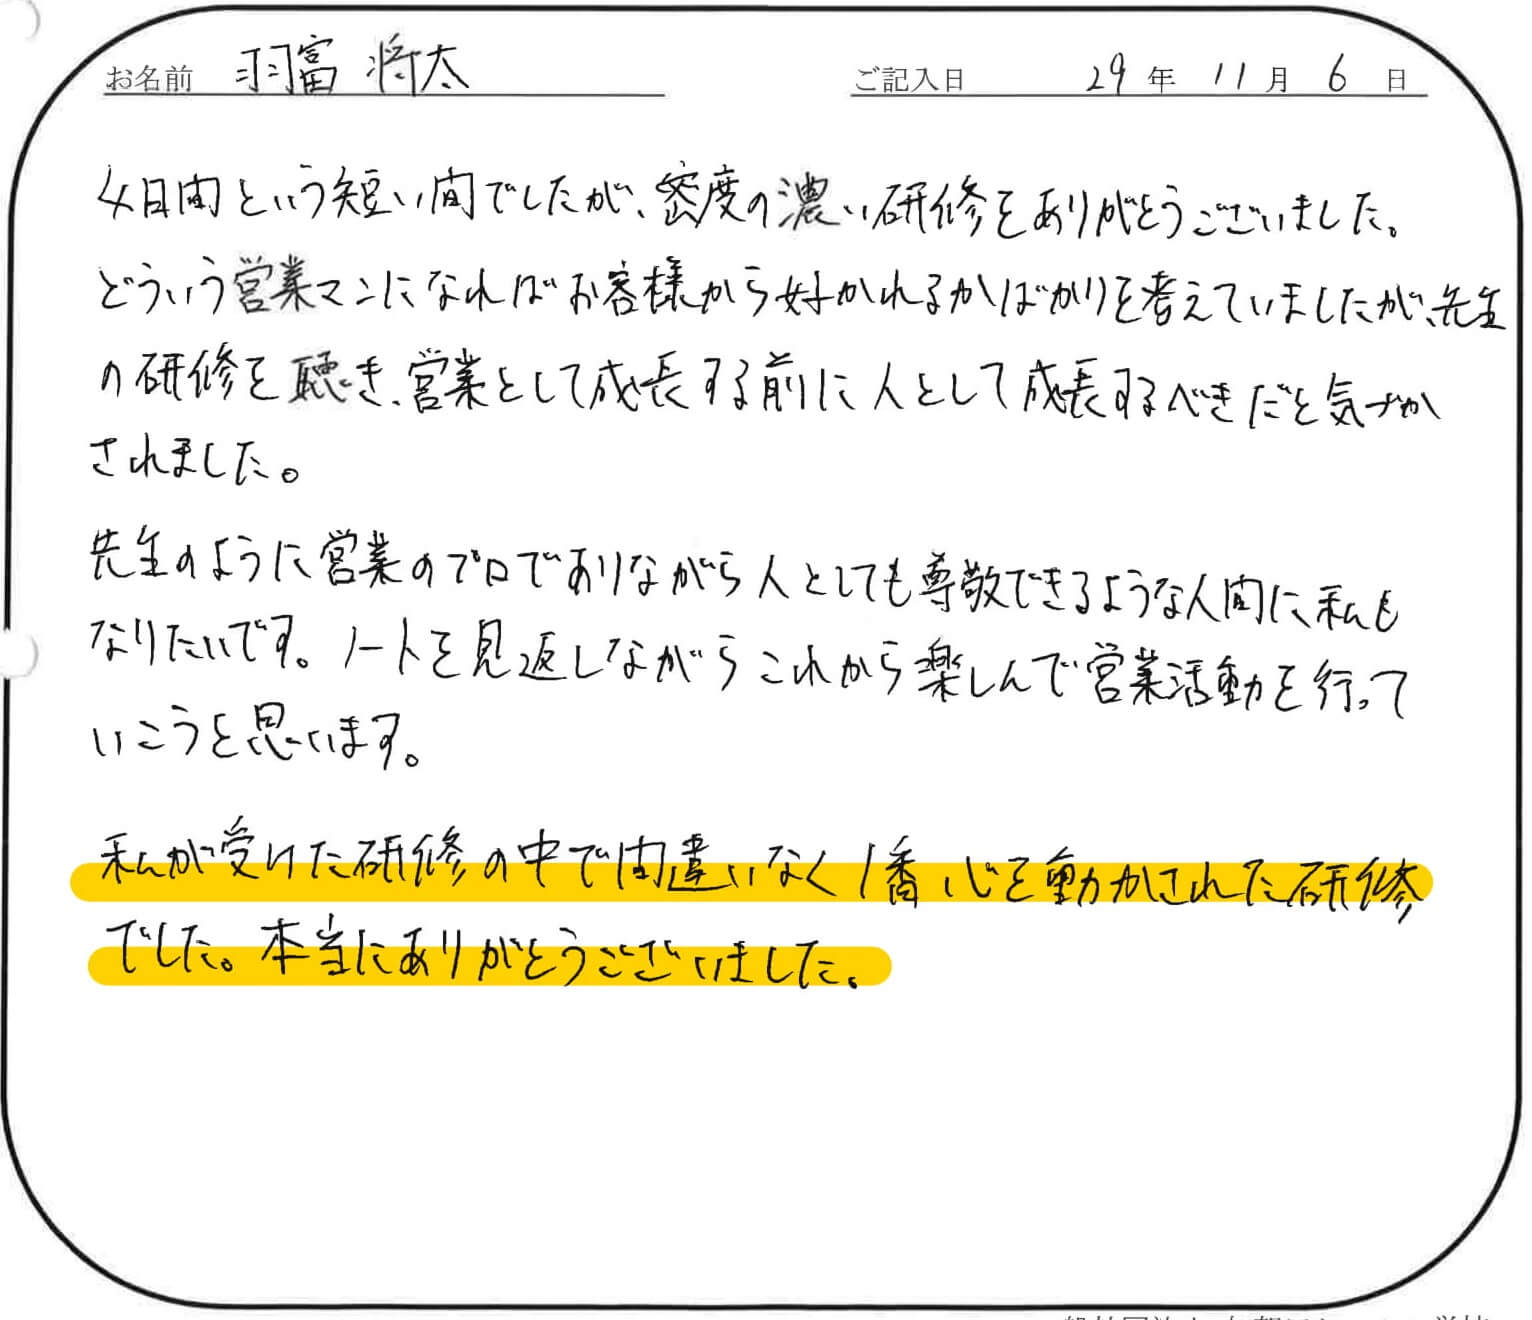 お名前 羽富 将太 ご記入日 29年 11月 6日
4日間という短い間でしたが、密度の濃い研修をありがとうございました。
どういう営業マンになればお客様から好かれるかばかりを考えていましたが、先生
の研修を聴き、営業として成長する前に人として成長するべきだと気づか
されました。
先生のように営業のプロでありながら人としても尊敬できるような人間に私も
なりたいです。ノートを見返しながらこれから楽しんで営業活動を行って
いこうと思います。
私が受けた研修の中で間違いなく1番心を動かされた研修
でした。本当にありがとうございました。